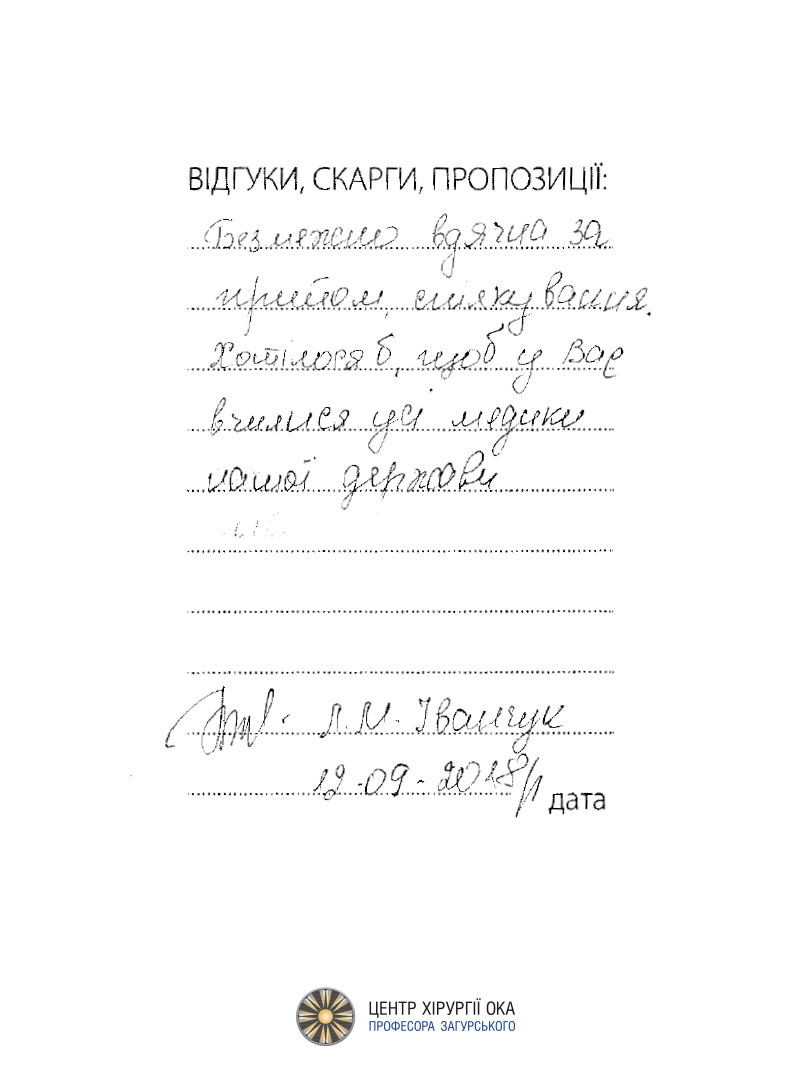 ВІДГУКИ, СКАРГИ, ПРОПОЗИЦІЇ:
Безмежно вдячна за
прийом, спілкування.
Хотілося б, щоб у Вас
вчилися усі медики
нашої держави
Л.М. Іванчук
12.09.2018р
дата
ЦЕНТР ХІРУРГІЇ ОКА
ПРОФЕСОРА ЗАГУРСЬКОГО